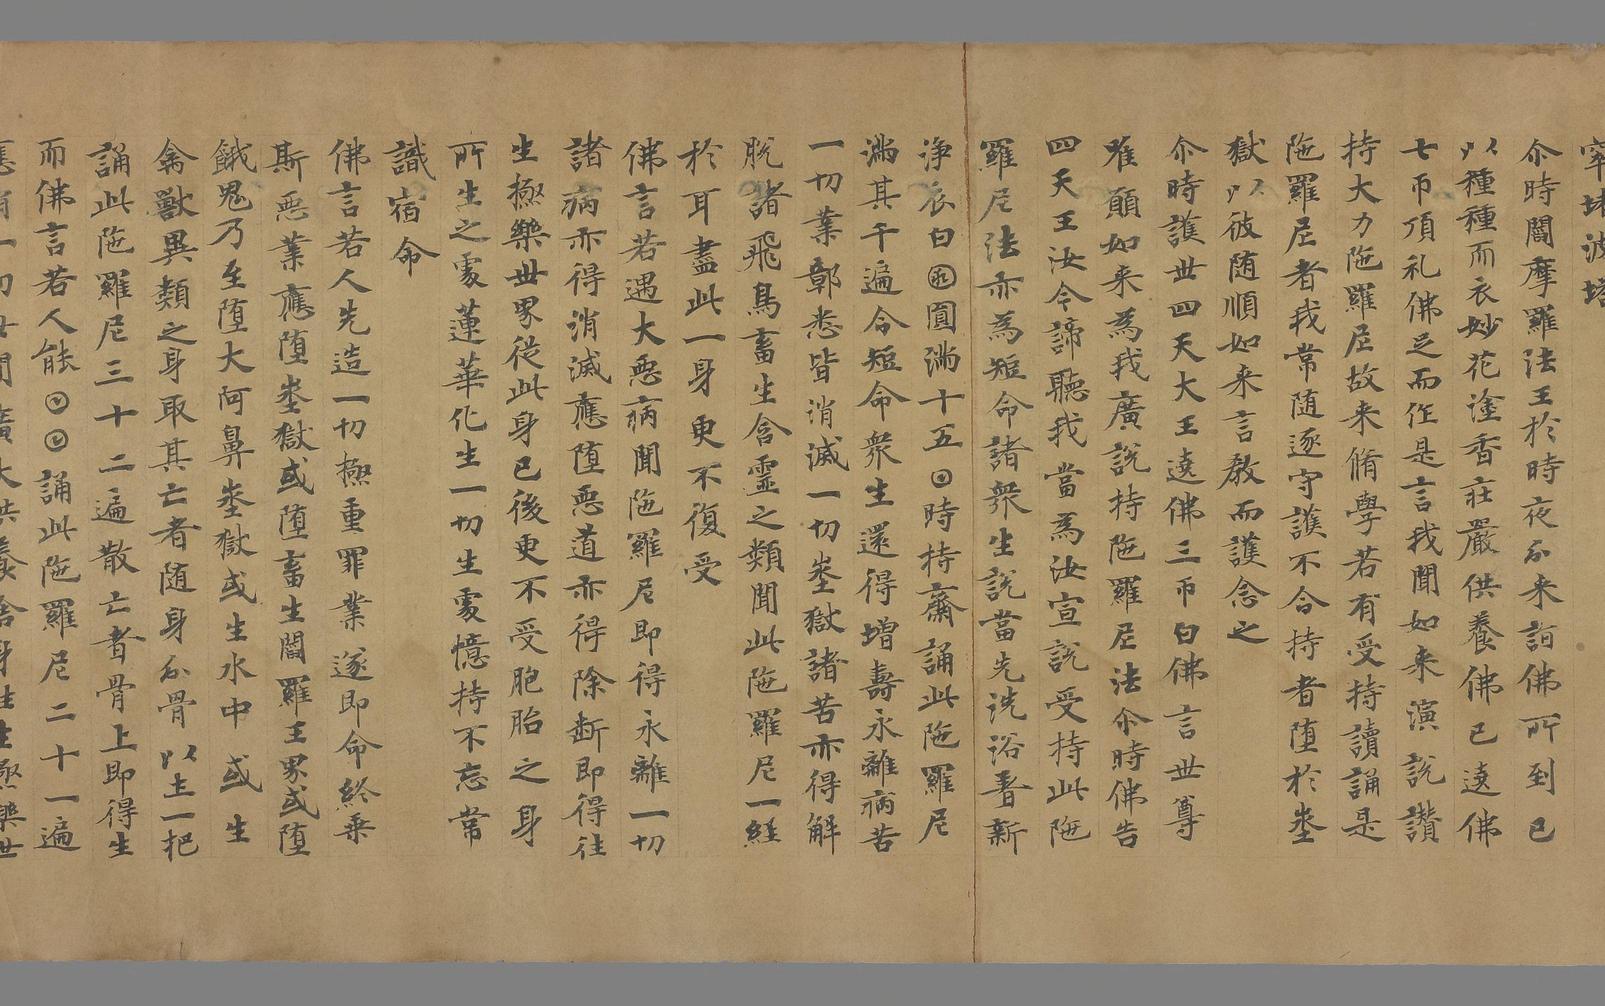 窣堵波塔
尒時閻摩羅法王於時夜分来詣佛所到已
以種種而衣妙花塗香荘嚴供養佛已遶佛
七帀頂礼佛足而作是言我聞如来演說讃
持大力陁羅尼故来脩學若有受持讀誦是
陁羅尼者我常随逐守護不令持者堕於埊
獄以彼随順如来言教而護念之
尒時護世四天大王遶佛三帀白佛言世尊
唯願如来為我廣說持陁羅尼法尒時佛告
四天王汝今諦聽我當為汝宣說受持此陁
羅尼法亦為短命諸衆生說當先洗浴著新
淨衣白圓滿十五時持齋誦此陁羅尼
滿其千遍令短命衆生還得增壽永離病苦
一切業鄣悉皆消滅一切埊獄諸苦亦得解
脫諸飛鳥畜生含靈之類聞此陁羅尼一経
於耳盡此一身更不復受
佛言若遇大惡病聞陁羅尼即得永離一切
諸病亦得消滅應堕惡道亦得除断即得往
生極樂世界従此身已後更不受胞胎之身
所生之處蓮華化生一切生處憶持不忘常
識宿命
佛言若人先造一切極重罪業遂即命終乗
斯惡業應堕埊獄或堕畜生閻羅王界或堕
餓鬼乃至堕大阿鼻埊獄或生水中或生
禽獸異類之身取其亡者随身分骨以土一把
誦此陁羅尼三十二遍散亡者骨上即得生
而佛言若人能誦此陁羅尼二十一遍
應消一切世間廣大供養捨身往生極樂世